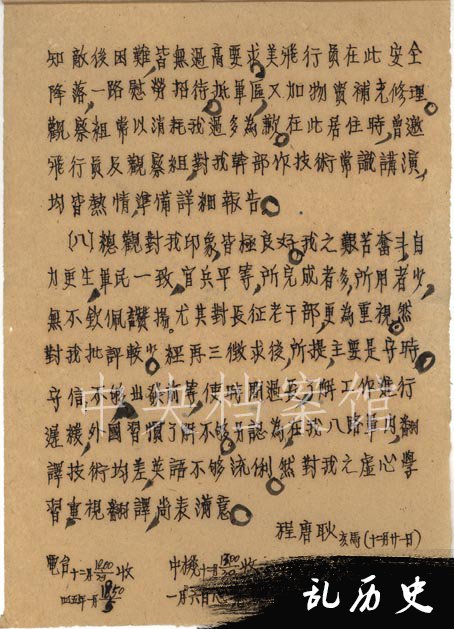 知敵後困難,皆無過高要求美飛行員在此安全
降落,一路慰勞招待抵軍區又加物資補充修理
觀察組常以消耗我過多為歉在此居住時,曾邀
飛行員及觀察組,對我幹部作技術常識講演,
均皆熱情準備詳細報告
(八)總觀對我印象,皆極良好,我之艱苦奮斗,自
力更生軍民一致,官兵平等,所完成者多,所用者少,
無不欽佩讚揚。尤其對長征老干部,更為重視,然
對我批評較少經再三徵求後,所提主要是守時
守信不够
使時間過長
工作進行
遲緩,外國習慣了解不够并認為在我八路軍內,翻
譯技術均差英語不够流俐,然對我之虛心學
習重視翻譯尚表滿意
程唐耿 亥馬(十二月廿一日)
電台十二月 收
中機十二月 收
四五年一月
一月六日
中央档案馆
乱历史